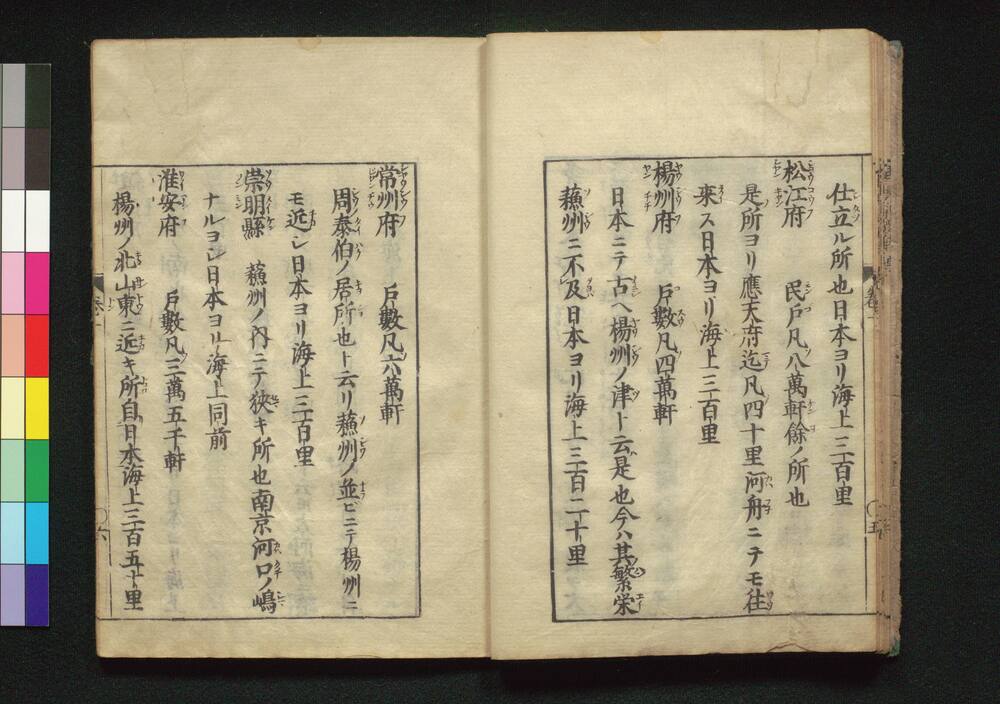 仕立ル所也日本ヨリ海上三百里
松江府　民戸凡八萬軒餘ノ所也
是所ヨリ應天府迄凡四十里河舟ニテモ往
來ス日本ヨリ海上三百里
楊州府　戸數凡四萬軒
日本ニテ古ヘ楊州ノ津ト云是也今ハ其繁栄
蘓州ニ不及日本ヨリ海上三百二十里
常州府　戸數凡六萬軒
周泰伯ノ居所也ト云リ蘓州ノ並ビニテ楊州ニ
モ近シ日本ヨリ海上三百里
崇明縣　蘓州ノ內ニテ狹キ所也南京河口ノ嶋
ナルヨシ日本ヨリ海上同前
淮安府　戸數凡三萬五千軒
楊州ノ北山東ニ近キ所自日本海上三百五十里